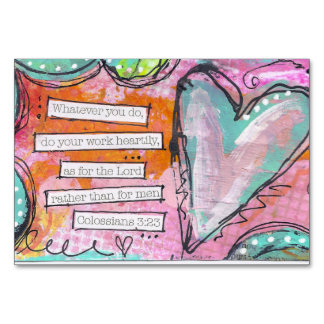 Whatever you do,
do your work heartily,
as for the Lord
rather than for men
Colossians 3:23